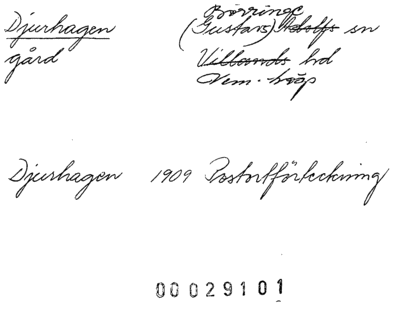 Djurhagen
gård
Börringe
(Gustavs) Adolfs sn
Villands hd
Vem. häp
Djurhagen 1909 Postortförteckning
00029101